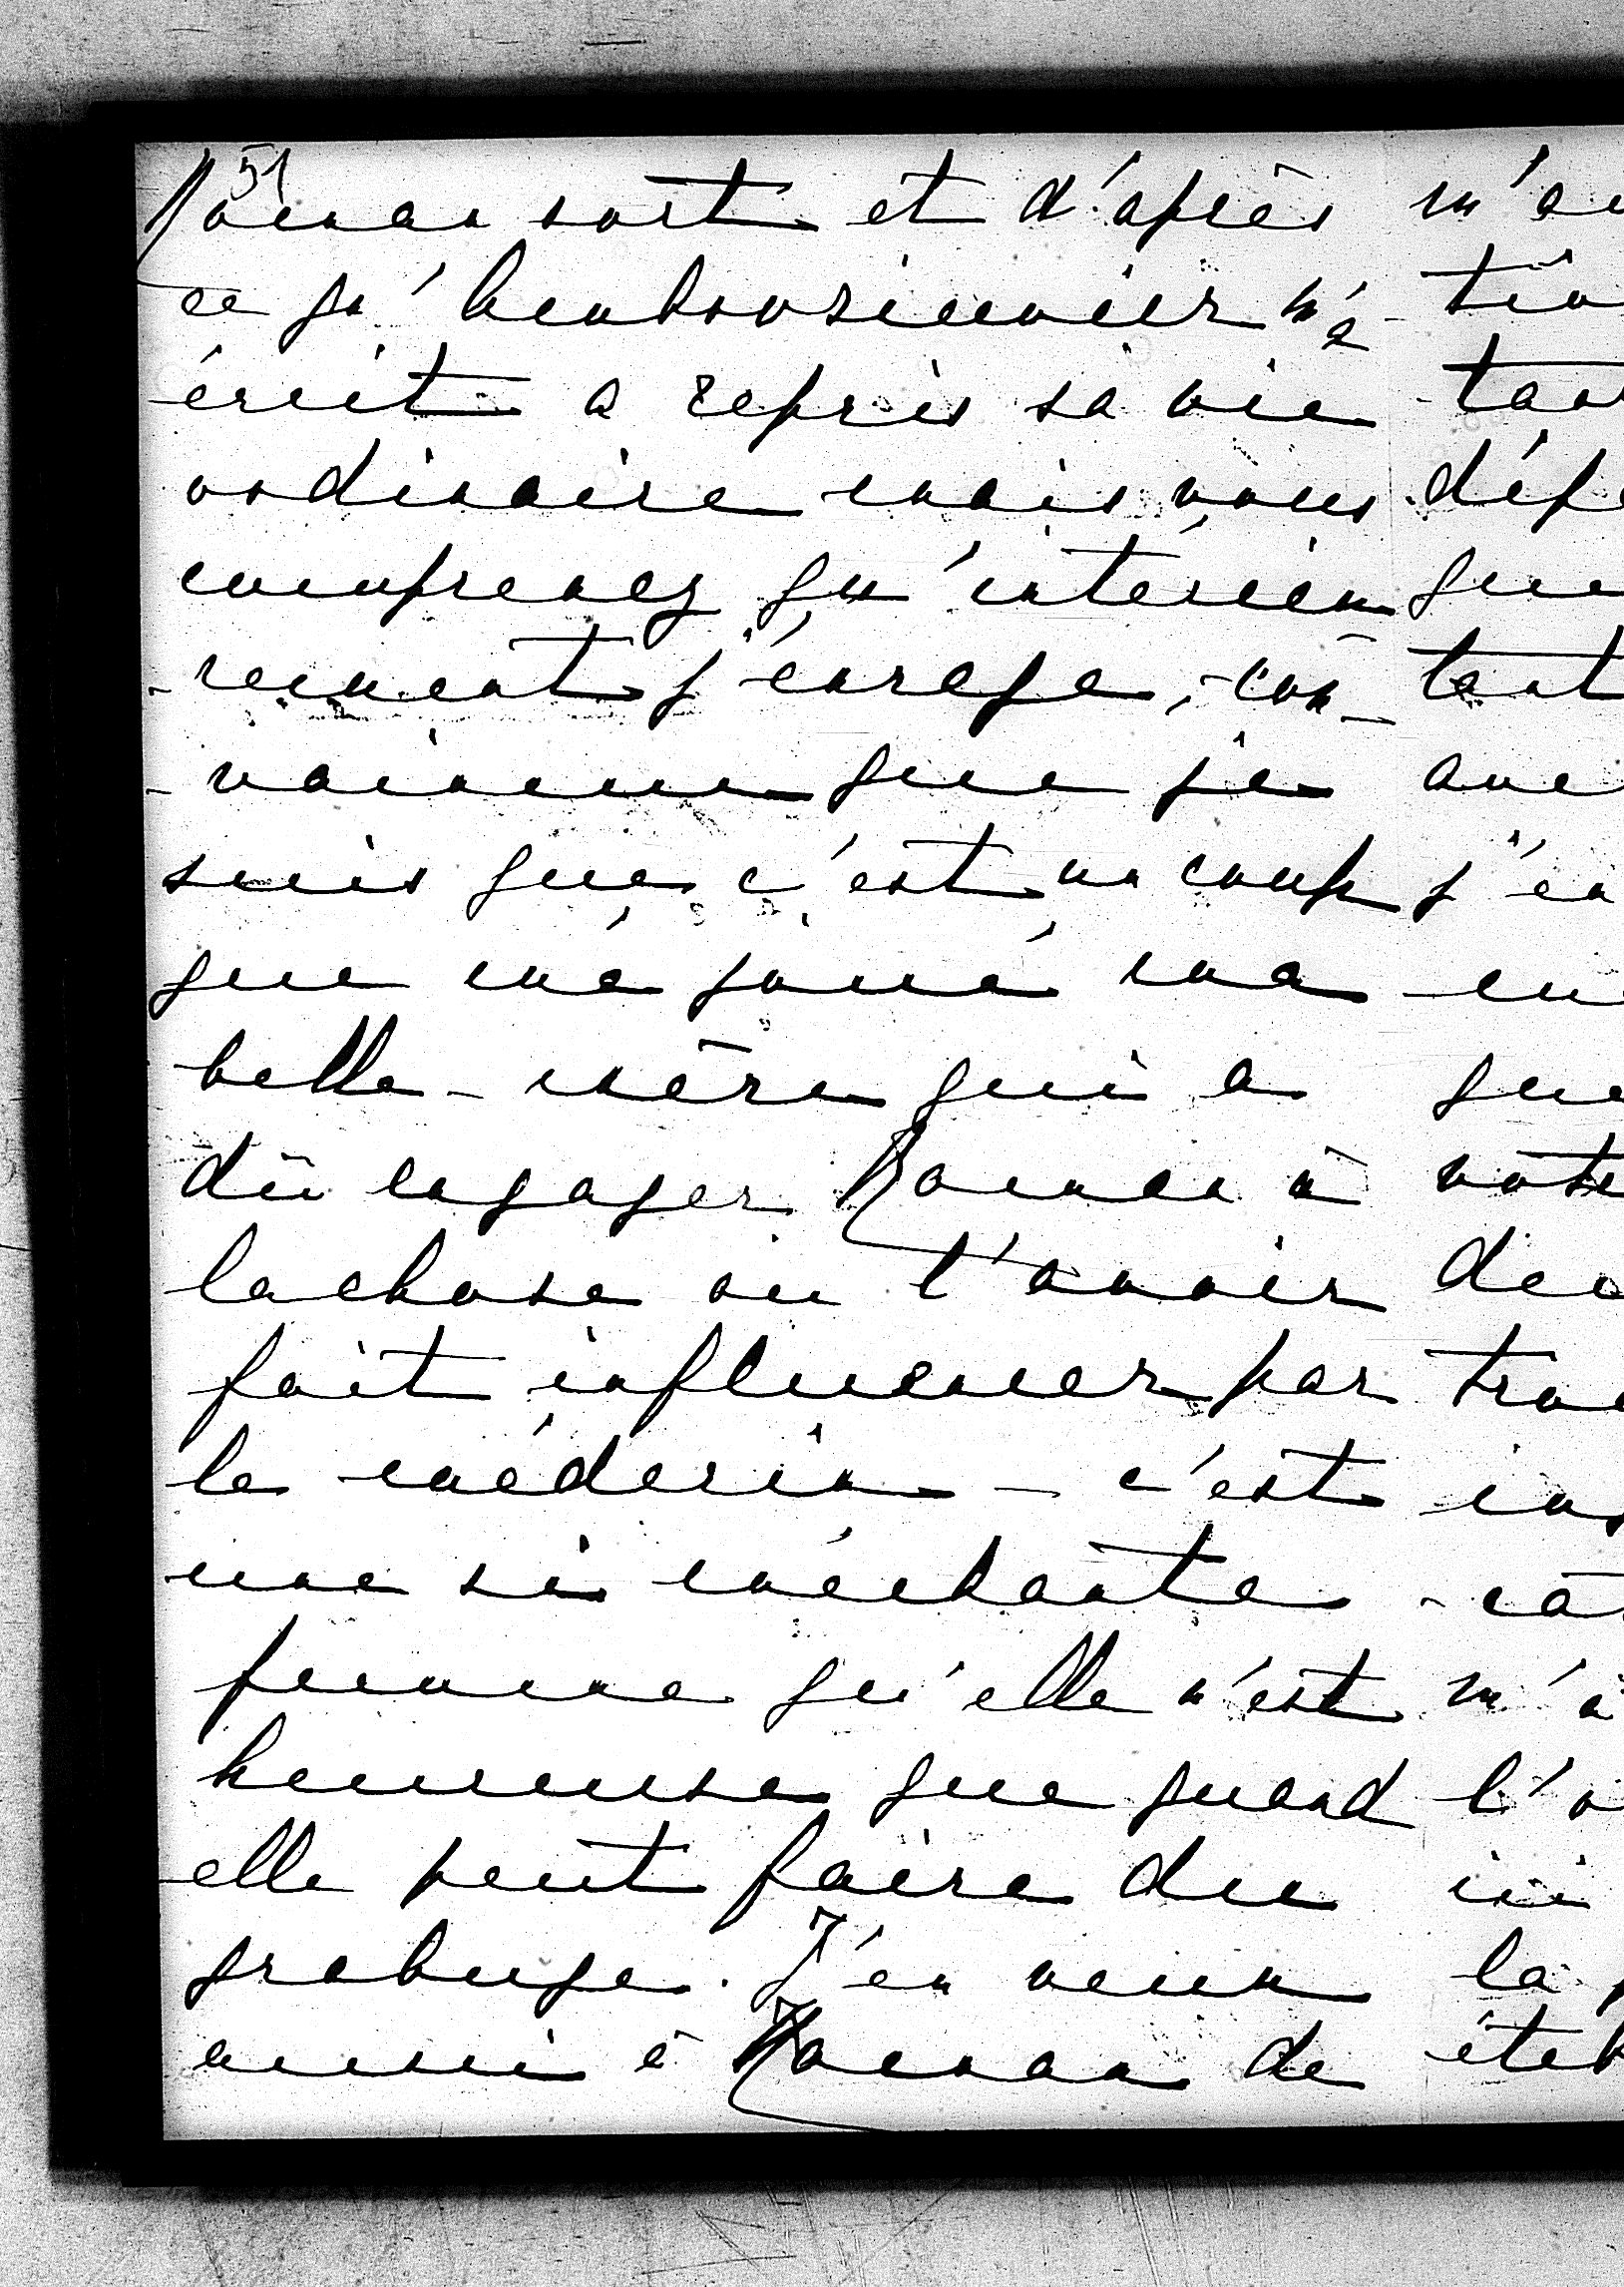 51
Roman sort et d'après
ce qu' m'a
écrit a repris sa vie
ordinaire mais vous
comprenez qu'intérieu
-rement j'enrage, con-
-vaincue que je
suis que c'est un coup
que m'a joué ma
belle-mère qui a
dû engager Roman à
la chose ou l'avoir
fait influencer par
le médecin - c'est
une si méchante
femme qu'elle n'est
heureuse que quand
elle peut faire du
grabuge. J'en veux
aussi à Roman de
dépe
que
tant
ave
j'en
que
ins
m'a
ici
la
étab